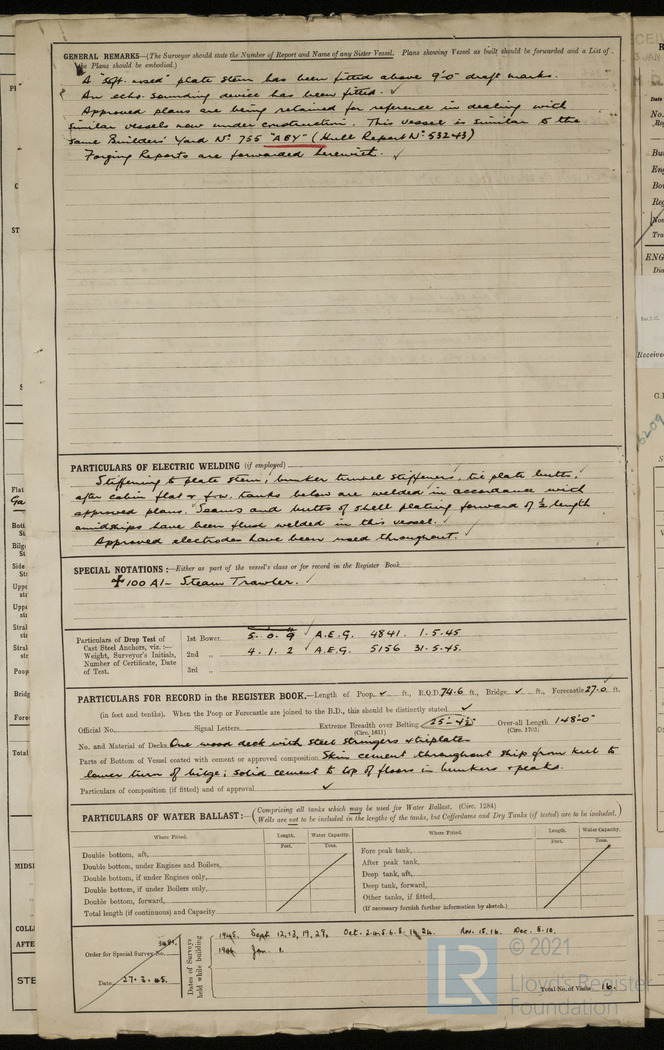 GENERAL REMARKS—(The Surveyor should state the Number of Report and Name of any Sister Vessel. Plans showing Vessel as built should be forwarded and a List of
the Plans should be embodied.)
A "soft nosed" plate stem has been fitted above 9'-0" draft marks.
An echo sounding device has been fitted. ✓
Approved plans are being retained for reference in dealing with
similar vessels now under construction. This vessel is similar to the
same Builders' Yard No 755 "ABY" (Hull Report No 53243)
Forging Reports are forwarded herewith. ✓
PARTICULARS OF ELECTRIC WELDING (if employed)
Stiffening to plate stem, bunker tunnel stiffeners, tie plate butts,
after cabin flat & f.w. tanks below are welded in accordance with
approved plans. Seams and butts of shell plating forward of ½ length
amidships have been flush welded in this vessel.
Approved electrodes have been used throughout.
SPECIAL NOTATIONS :—Either as part of the vessel's class or for record in the Register Book
✠ 100 A1 - Steam Trawler. ✓
Particulars of Drop Test of Cast Steel Anchors, viz.:— Weight, Surveyor's Initials, Number of Certificate, Date of Test.
1st Bower 5. 0. 9 A.E.G. 4841. 1.5.45
2nd „ 4. 1. 2 A.E.G. 5156 31.5.45.
3rd „
PARTICULARS FOR RECORD in the REGISTER BOOK.—Length of Poop ✓ ft., R.Q.D. 74.6 ft., Bridge ✓ ft., Forecastle 27.0 ft.
(in feet and tenths). When the Poop or Forecastle are joined to the B.D., this should be distinctly stated ✓
Official No. Signal Letters Extreme Breadth over Belting 25'-4½" Over-all Length 148'-0"
(Circ. 1611) (Circ. 1703)
No. and Material of Decks One wood deck with steel stringers & tieplates
Parts of Bottom of Vessel coated with cement or approved composition Skin cement throughout ship from keel to
lower turn of bilge; solid cement to top of floors in bunkers & peaks.
Particulars of composition (if fitted) and of approval ✓
PARTICULARS OF WATER BALLAST:— (Comprising all tanks which may be used for Water Ballast. (Circ. 1284)
Wells are not to be included in the lengths of the tanks, but Cofferdams and Dry Tanks (if tested) are to be included.)
Where Fitted. Length. Water Capacity. Where Fitted. Length. Water Capacity.
Feet. Tons. Feet. Tons.
Double bottom, aft, Fore peak tank,
Double bottom, under Engines and Boilers, After peak tank,
Double bottom, if under Engines only, Deep tank, aft,
Double bottom, if under Boilers only, Deep tank, forward,
Double bottom, forward, Other tanks, if fitted,
Total length (if continuous) and Capacity (If necessary furnish further information by sketch.)
Order for Special Survey No. 3481.
Date 27.3.45.
Dates of Surveys held while building
1945. Sept. 12, 13, 19, 29, Oct. 2.4.5.6.8. 16, 24. Nov. 15.16. Dec. 8.10.
1946 Jan. 1.
Total No. of Visits 16.
© 2021
LR
Lloyd's Register
Foundation